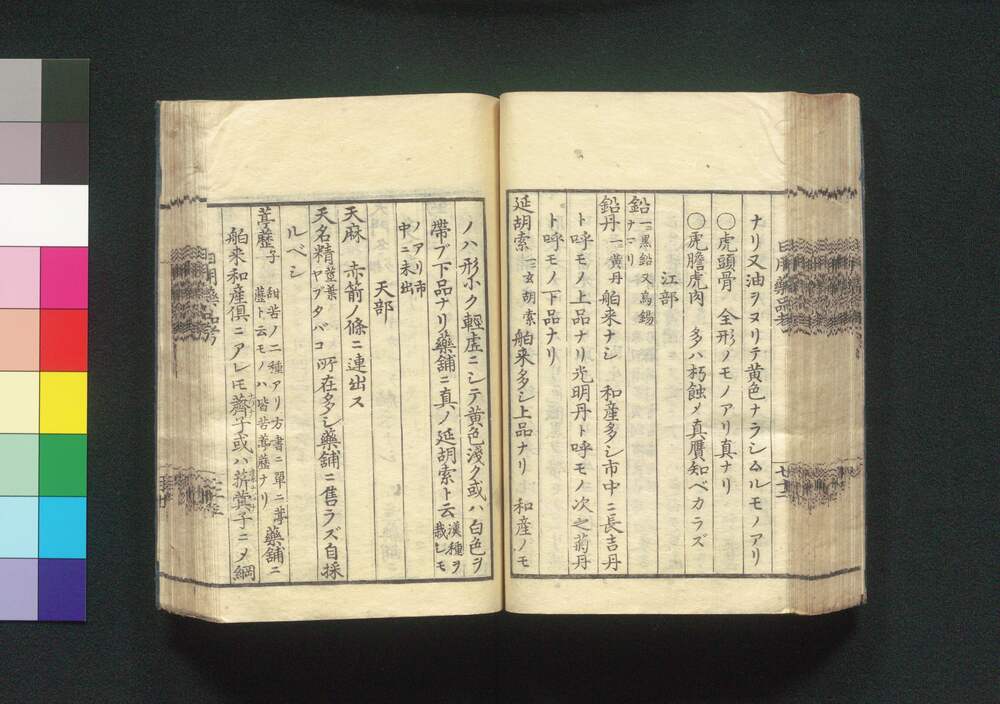 ナリ又油ヲヌリテ黄色ナラシムルモノアリ
〇虎頭骨 全形ノモノアリ真ナリ
〇虎膽虎肉 多ハ朽蝕〆真贋知ベカラズ
江部
鉛 一ニ黒鉛又烏錫
ナマリ
鉛丹 一ニ黄丹 舶来ナシ 和産多シ市中ニ長吉丹
ト呼モノ上品ナリ光明丹ト呼モノ次之菊丹
ト呼モノ下品ナリ
延胡索 一ニ玄胡索 舶来多シ上品ナリ 和産ノモ
ノハ形小ク輕虚ニシテ黄色淺ク或ハ白色ヲ
帶ブ下品ナリ藥舗ニ真ノ延胡索ト云 漢種ヲ栽シモ
ノアリ市中ニ未出
天部
天麻 赤箭ノ條ニ連出ス
天名精 莖葉 ヤブタバコ 所在多シ藥舗ニ售ラズ自採
ルベシ
葶藶子 甜苦ノ二種アリ方書ニ單ニ葶藶ト云モノハ皆苦葶藶ナリ 藥舗ニ
舶来和産倶ニアレ𪜈薺子或ハ菥蓂子ニ〆綱
日用藥品考
七十二